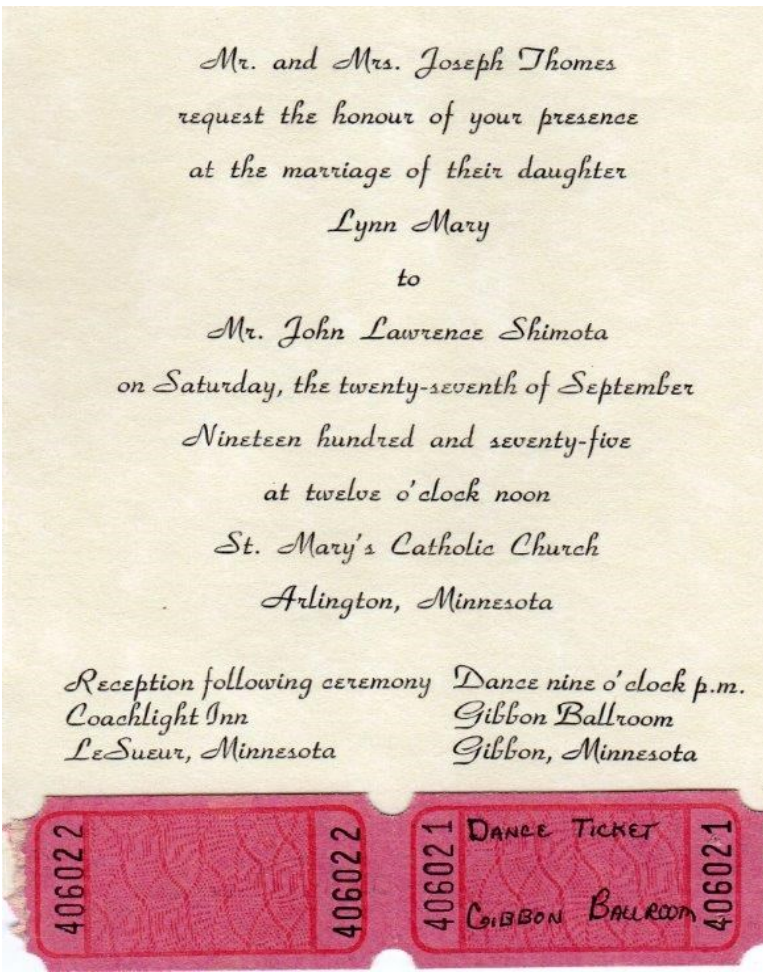 Mr. and Mrs. Joseph Thomes
request the honour of your presence
at the marriage of their daughter
Lynn Mary
to
Mr. John Lawrence Shimota
on Saturday, the twenty-seventh of September
Nineteen hundred and seventy-five
at twelve o'clock noon
St. Mary's Catholic Church
Arlington, Minnesota
Reception following ceremony
Coachlight Inn
LeSueur, Minnesota
Dance nine o'clock p.m.
Gibbon Ballroom
Gibbon, Minnesota
406022
406022
406021
DANCE TICKET
GIBBON BALLROOM
406021